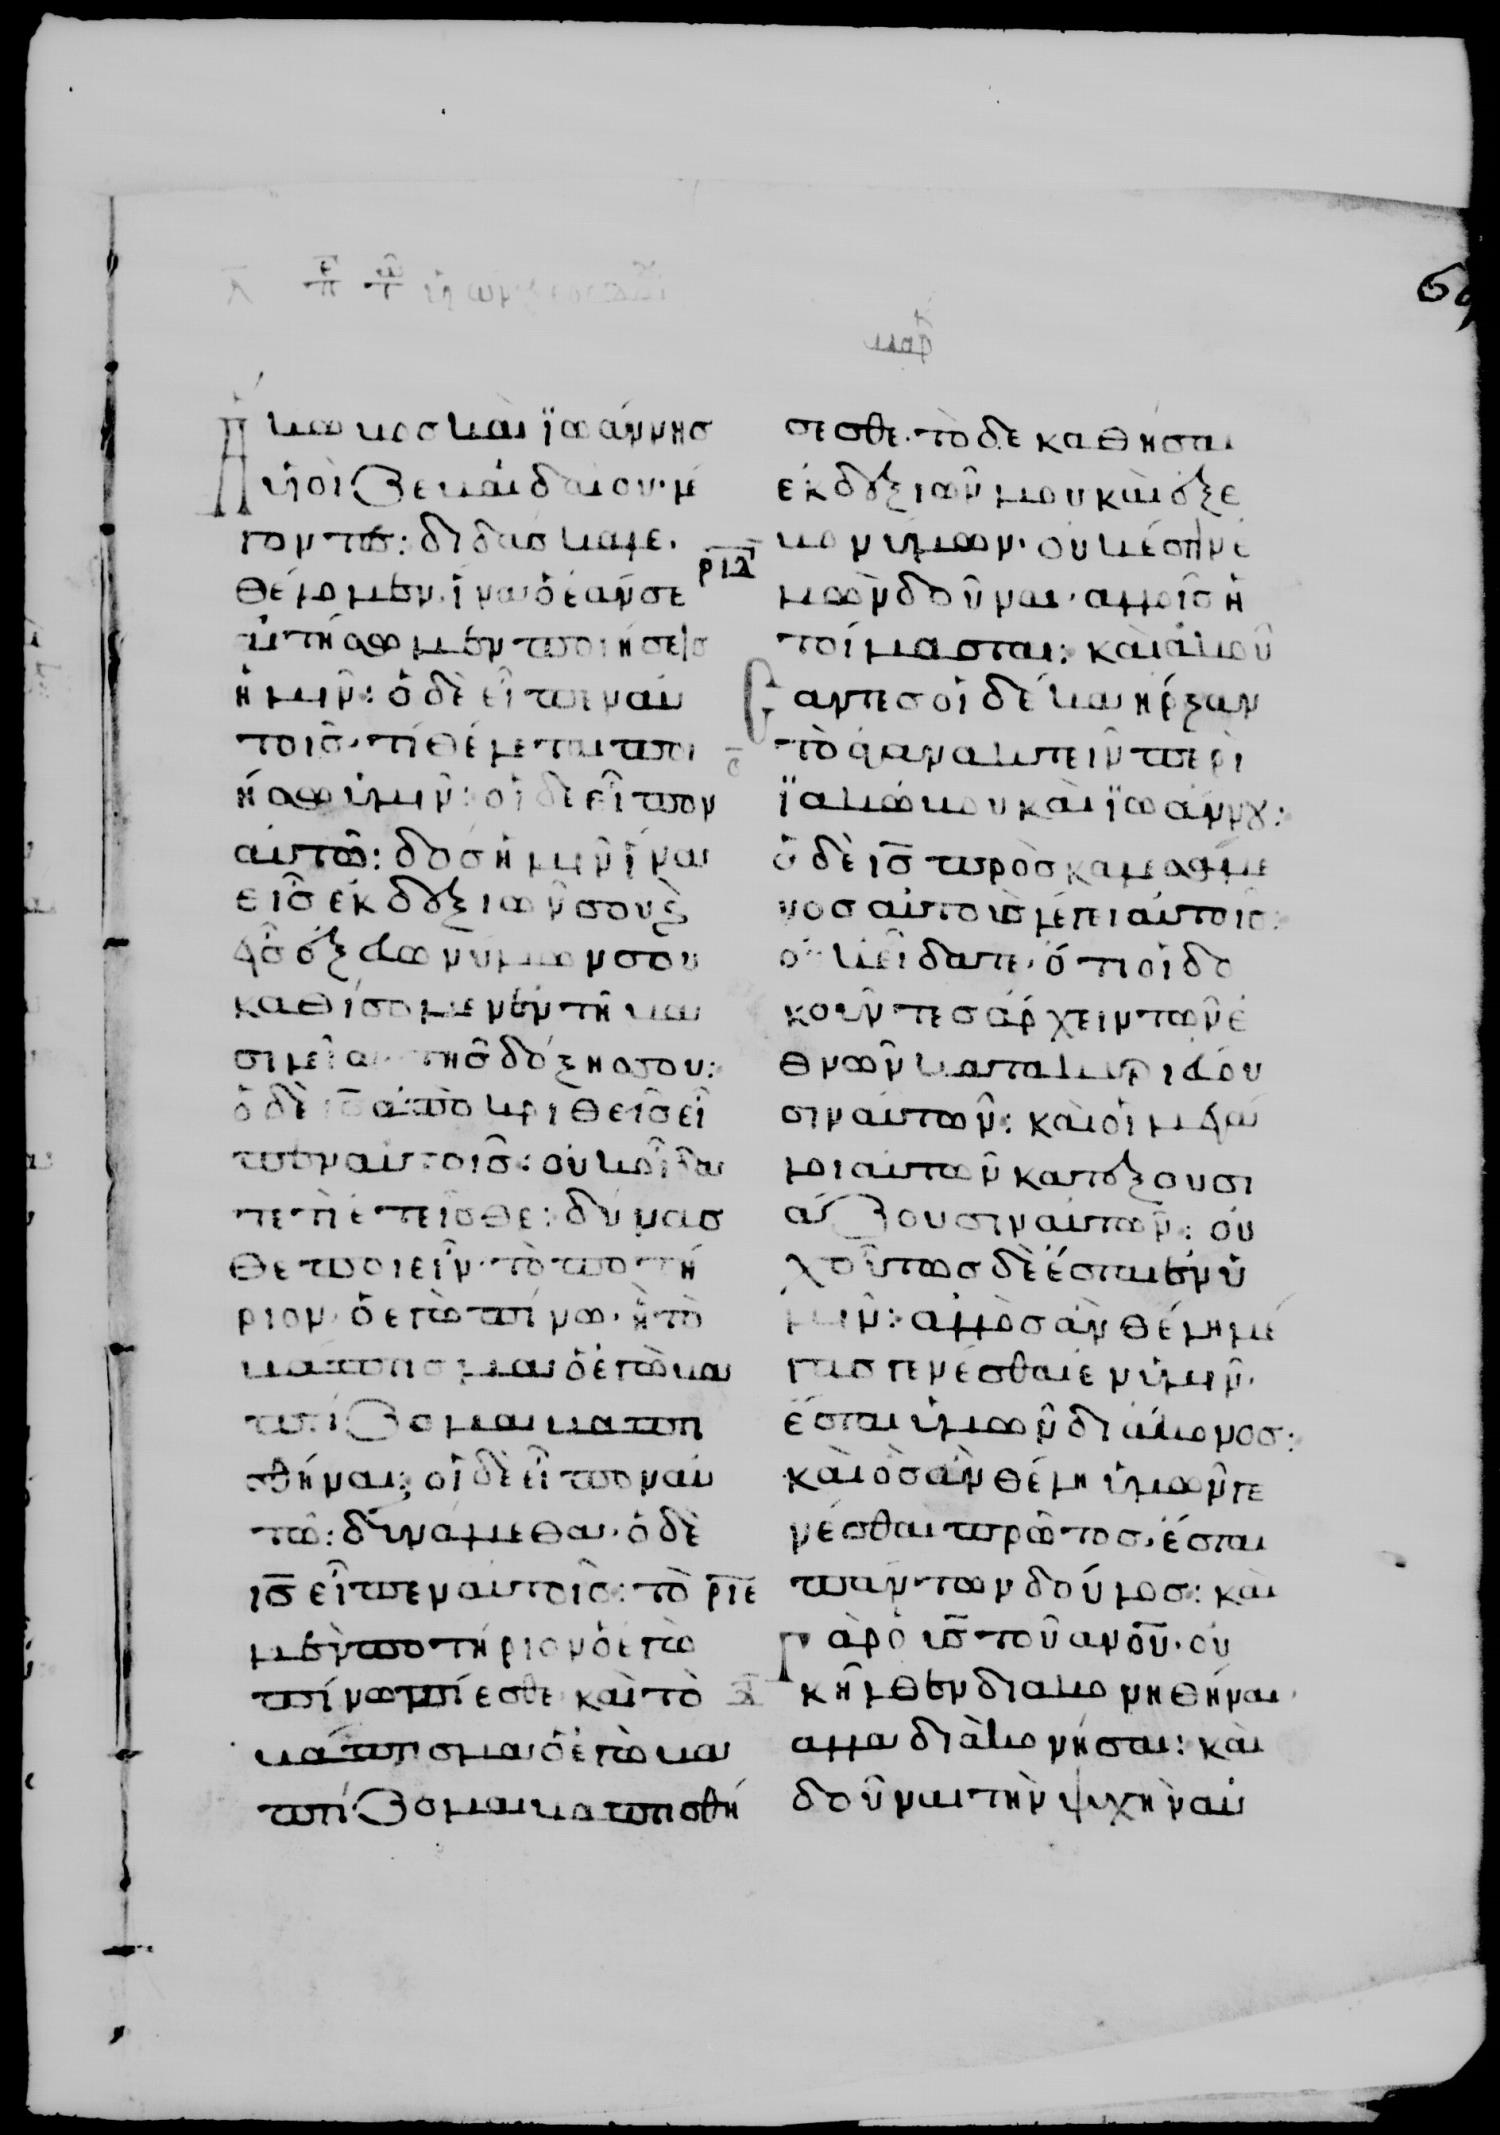 μαρκ
κωβος και ϊωάννης
υἱοὶ ζεβαιδαίου· λέ
γοντες: διδάσκαλε·
θέλομεν ἵνα ὃ ἐάν σε
αἰτήσωμεν ποιήσεις
ἡμῖν: ὁ δὲ εἶπεν αὐ
τοῖς· τί θέλεται ποι
ήσω ὑμῖν: οἱ δὲ εἶπον
αὐτῶ: δὸς ἡμῖν ἵνα
εἷς ἐκ δεξιῶν σου ϗ
εἷς ἐξ εὐωνύμων σου
καθίσομεν ἐν τῆ βα
σιλεία της δόξης σου:
ὁ δὲ ις ἀποκριθεὶς εἶ
πεν αὐτοῖς: οὐκ οἴδα
τε τὶ αἰτεῖσθε: δύνασ
θε ποιεῖν τὸ ποτή
ριον ὃ ἐγὼ πίνω· ἢ τὸ
βάπτισμα ὃ ἐγὼ βα
πτίζομαι βαπτι
σθῆναι; οἱ δὲ εἶπον αὐ
τῶ: δυνάμεθα· ὁ δὲ
ις εἶπεν αὐτοῖς: τὸ
ριε
μὲν ποτήριον ὃ ἐγὼ
πίνω πίεσθε καὶ τὸ
βάπτισμα ὃ ἐγὼ βα
πτίζομαι βαπτισθή
σεσθε· τὸ δὲ καθῆσαι
ἐκ δεξιῶν μου καὶ ἐξ ε
ριδ
ὐωνύμων· οὐκ ἔστιν ἐ
μὸν δοῦναι· ἀλλ' οἷς ἡ
τοίμασται: καὶ ἀκού
σαντες οἱ δέκα ἤρξαν
το ἀγανακτεῖν περὶ
ϊακώβου καὶ ϊωάννου:
ὁ δὲ ις προσκαλεσάμε
νος αὐτοὺς λέγει αὐτοῖς:
οὐκ οἴδατε· ὅτι οἱ δο
κοῦντες ἄρχειν τῶν ἐ
θνῶν κατακυριεύου
σιν αὐτῶν: καὶ οἱ μεγά
λοι αὐτῶν κατεξουσι
άζουσιν αὐτῶν: οὐ
χ οὕτως δὲ ἔσται ἐν ὑ
μῖν: ἀλλ' ὃς ἂν θέλη μέ
γας γενέσθαι ἐν ὑμῖν·
ἔσται ὑμῶν διάκονος:
καὶ ὃς ἂν θέλη ὑμῶν γε
νέσθαι πρῶτος· ἔσται
πάντων δοῦλος: καὶ
γὰρ ὁ υς τοῦ ανου· οὐ
κ ἦλθεν διακονηθῆναι·
ἀλλα διακονῆσαι: καὶ
δοῦναι τὴν ψυχὴν αὐ